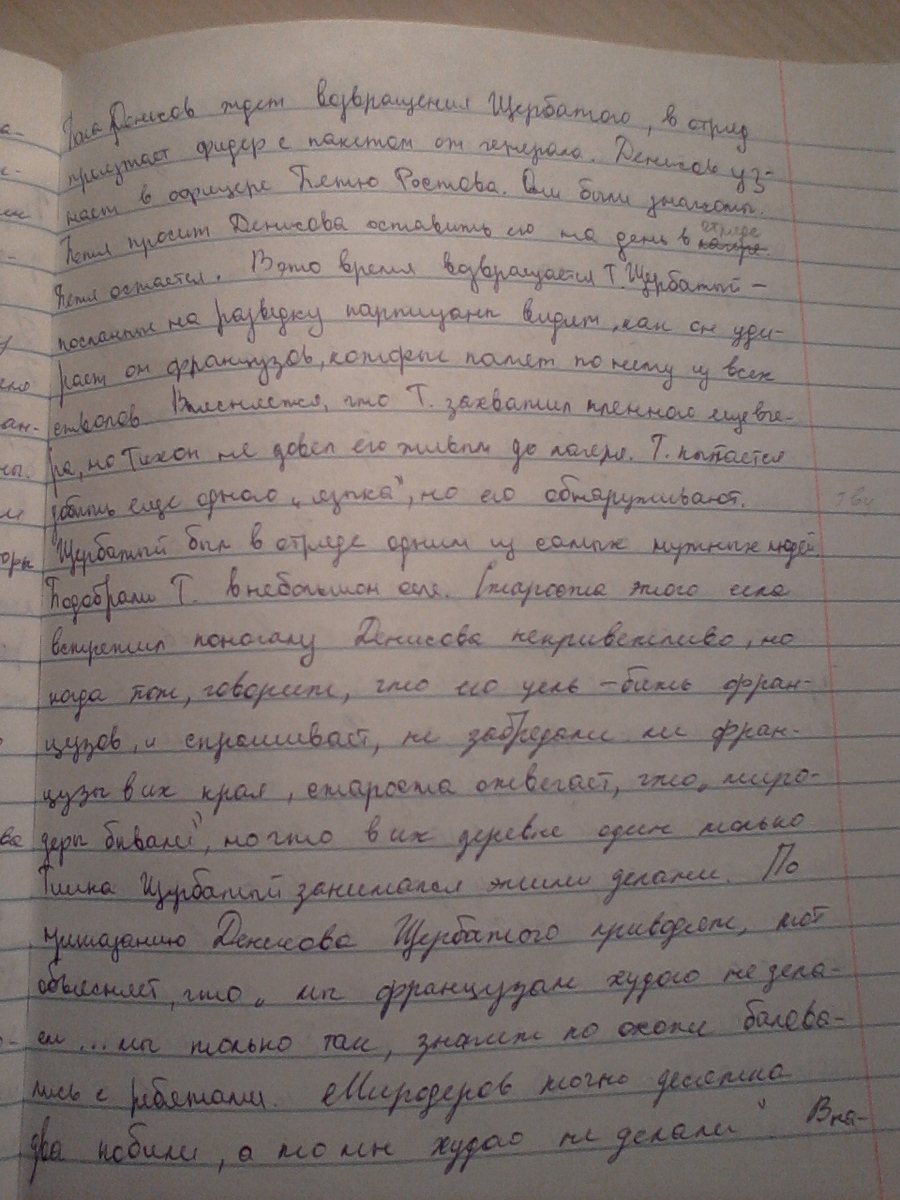 Пока Денисов ждет возвращения Щербатого, в отряд
приезжает офицер с пакетом от генерала. Денисов уз-
нает в офицере Петю Ростова. Они были знакомы.
Петя просит Денисова оставить его на день в отряде
Петя остается. В это время возвращается Т. Щербатый –
посланный на разведку партизаны видят, как он уди-
рает от французов, которые палят по нему из всех
стволов. Выясняется, что Т. захватил пленного еще вче-
ра, но Тихон не довел его живым до лагеря. Т. пытается
добыть еще одного „языка", но его обнаруживают.
Щербатый был в отряде одним из самых нужных людей.
Подобрали Т. в небольшом селе. Староста этого села
встретил поначалу Денисова неприветливо, но
когда тот, говорит, что его цель – бить фран-
цузов, и спрашивает, не забредали ли фран-
цузы в их края, староста отвечает, что „миро-
деры бывали", но что в их деревне один только
Тишка Щербатый занимался этими делами. По
Денисова Щербатого приводят, тот
объясняет, что „мы французам худого не дела-
ем ... мы только так, значит по охоте балова-
лись с ребятами. Миродеров точно десятка
два побили, а то мы худого не делали" Вна-